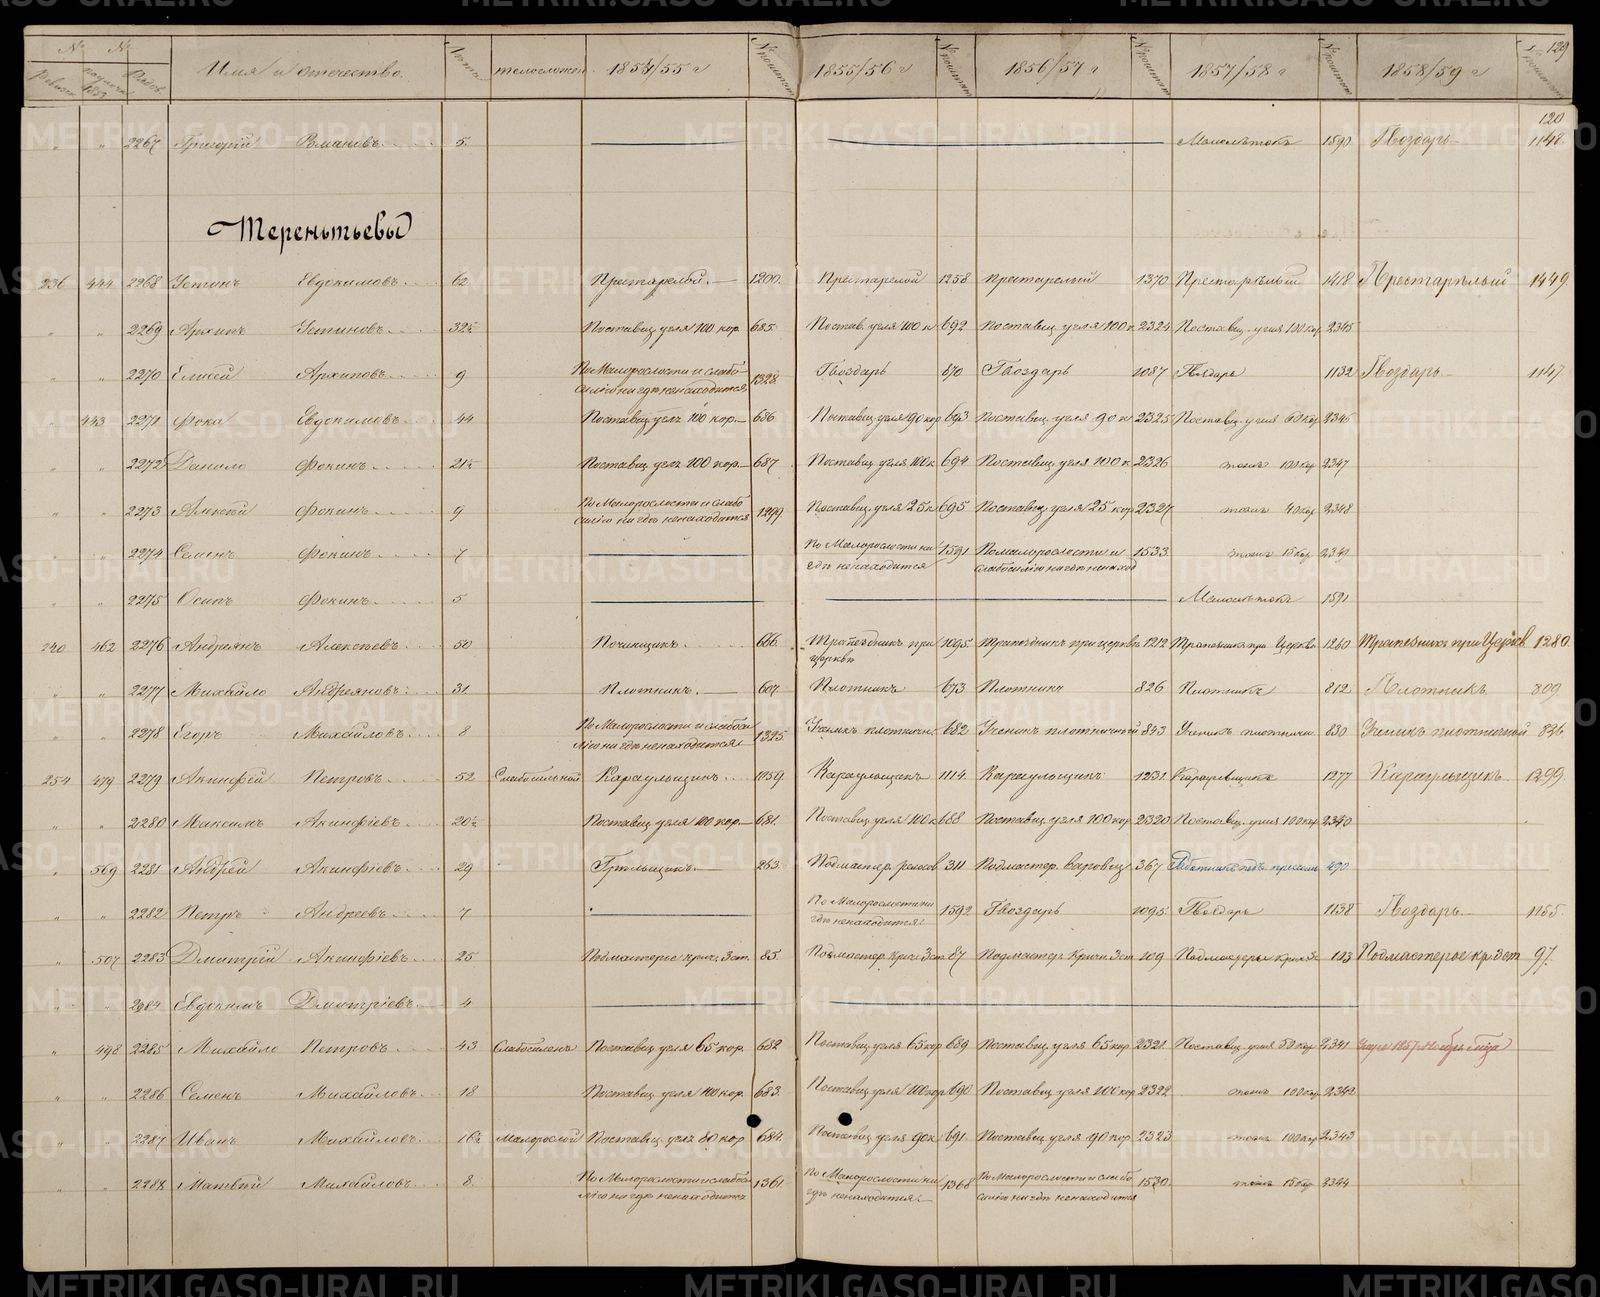 № № Имя и отчество. Лета телосложен. 1854/55 г № 1855/56 г № 1856/57 г № 1857/58 г № 1858/59 г № 129
120
2267 Григорій Романовъ 5 Малолѣтокъ 1590 Гвоздарь 1148
Терентьевы
236 444 2268 Устинъ Евдокимовъ 62 Престарелой 1200 Престарелой 1258 Престарелый 1370 Престарѣлый 1418 Престарѣлый 1449
2269 Архипъ Устиновъ 32½ Поставщ. угля 100 кор. 685 Постав. угля 100 к 692 Поставщ. угля 100 к 2324 Поставщ. угля 100 кор 2345
2270 Елисей Архиповъ 9 По Малорослости и слабо силію нигдѣ ненаходится 1328 Гвоздарь 870 Гвоздарь 1087 Гвоздарь 1132 Гвоздарь 1147
443 2271 Фока Евдокимовъ 44 Поставщ. угля 100 кор. 686 Поставщ. угля 90 кор 693 Поставщ. угля 90 к 2325 Поставщ. угля 60 кор 2346
2272 Данило Фокинъ 21½ Поставщ. угля 100 кор. 687 Поставщ. угля 100 к 694 Поставщ. угля 100 к 2326 тожъ 100 кор 2347
2273 Алексей Фокинъ 9 По Малорослости и слабо силію нигдѣ ненаходится 1299 Поставщ. угля 25 к 695 Поставщ. угля 25 кор 2327 тожъ 40 кор 2348
2274 Семенъ Фокинъ 7 По Малорослости ни гдѣ ненаходится 1591 По малорослости и слабосилію нигдѣ ненаход 1533 тожъ 15 кор 2349
2275 Осипъ Фокинъ 5 Малолѣтокъ 1591
240 462 2276 Андреянъ Алексѣевъ 50 Починщикъ 666 Трапезникъ при церкви 1095 Трапезникъ при церкви 1212 Трапезникъ при Церкви 1260 Трапезникъ при Церкв 1280
2277 Михайло Андреяновъ 31 Плотникъ 607 Плотникъ 673 Плотникъ 826 Плотникъ 812 Плотникъ 809
2278 Егоръ Михайловъ 8 По Малорослости и слабоси лію нигдѣ ненаходится 1325 Ученикъ плотничн. 682 Ученикъ плотничный 843 Ученикъ плотничн. 830 Ученикъ плотничной 826
254 479 2279 Акинфей Петровъ 52 Слабосильной Караульщикъ 1059 Караульщикъ 1114 Караульщикъ 1231 Караульщикъ 1277 Караульщикъ 1299
2280 Максимъ Акинфіевъ 20½ Поставщ. угля 100 кор. 681 Поставщ. угля 100 к 688 Поставщ. угля 100 кор 2320 Поставщ. угля 100 кор 2340
569 2281 Андрей Акинфіевъ 29 263 Подмастер. 311 Подмастер. 367 490
2282 Петръ Андреевъ 7 По Малорослости ни гдѣ ненаходится 1592 Гвоздарь 1095 Гвоздарь 1138 Гвоздарь 1155
507 2283 Дмитрій Акинфіевъ 25 Подмастерье крич. 3 ст. 85 Подмастер Крич. 3 ст 87 Подмастер. Кричн 3 ст 109 Подмастерье Крич 3 с 103 Подмастерье кр. 3 ст 97
2284 Евдокимъ Дмитріевъ 4
498 2285 Михайло Петровъ 43 Слабосиленъ Поставщ. угля 65 кор. 682 Поставщ. угля 65 кор 689 Поставщ. угля 65 кор. 2321 Поставщ. угля 50 кор 2341
2286 Семенъ Михайловъ 18 Поставщ. угля 100 кор. 683 Поставщ. угля 100 кор 690 Поставщ. угля 100 кор 2322 тожъ 100 кор 2342
2287 Иванъ Михайловъ 16½ Малорослой Поставщ. угля 80 кор 684 Поставщ. угля 90 к 691 Поставщ. угля 90 кор. 2323 тожъ 100 кор 2343
2288 Матвѣй Михайловъ 8 По Малорослости и слабоси лію нигдѣ ненаходится 1361 По Малорослости ни гдѣ ненаходится 1368 По Малорослости и слабо силію нигдѣ ненаходится 1530 тожъ 15 кор 2344
METRIKI.GASO-URAL.RU